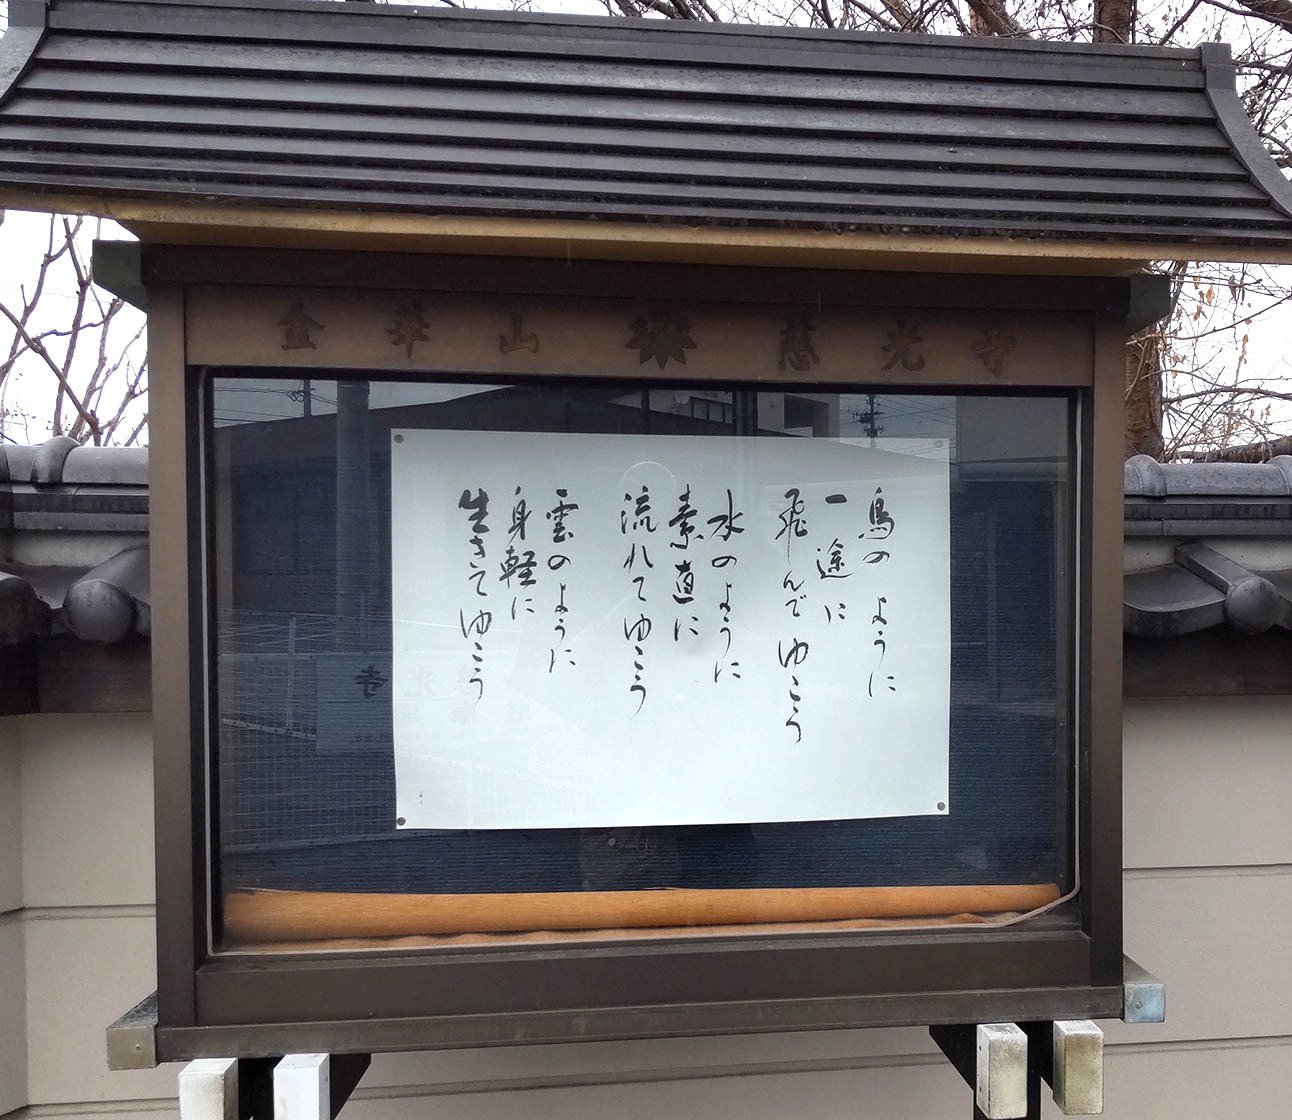 金華山 慈光寺
鳥のように
一途に
飛んでゆこう
水のように
素直に
流れてゆこう
雲のように
身軽に
生きてゆこう